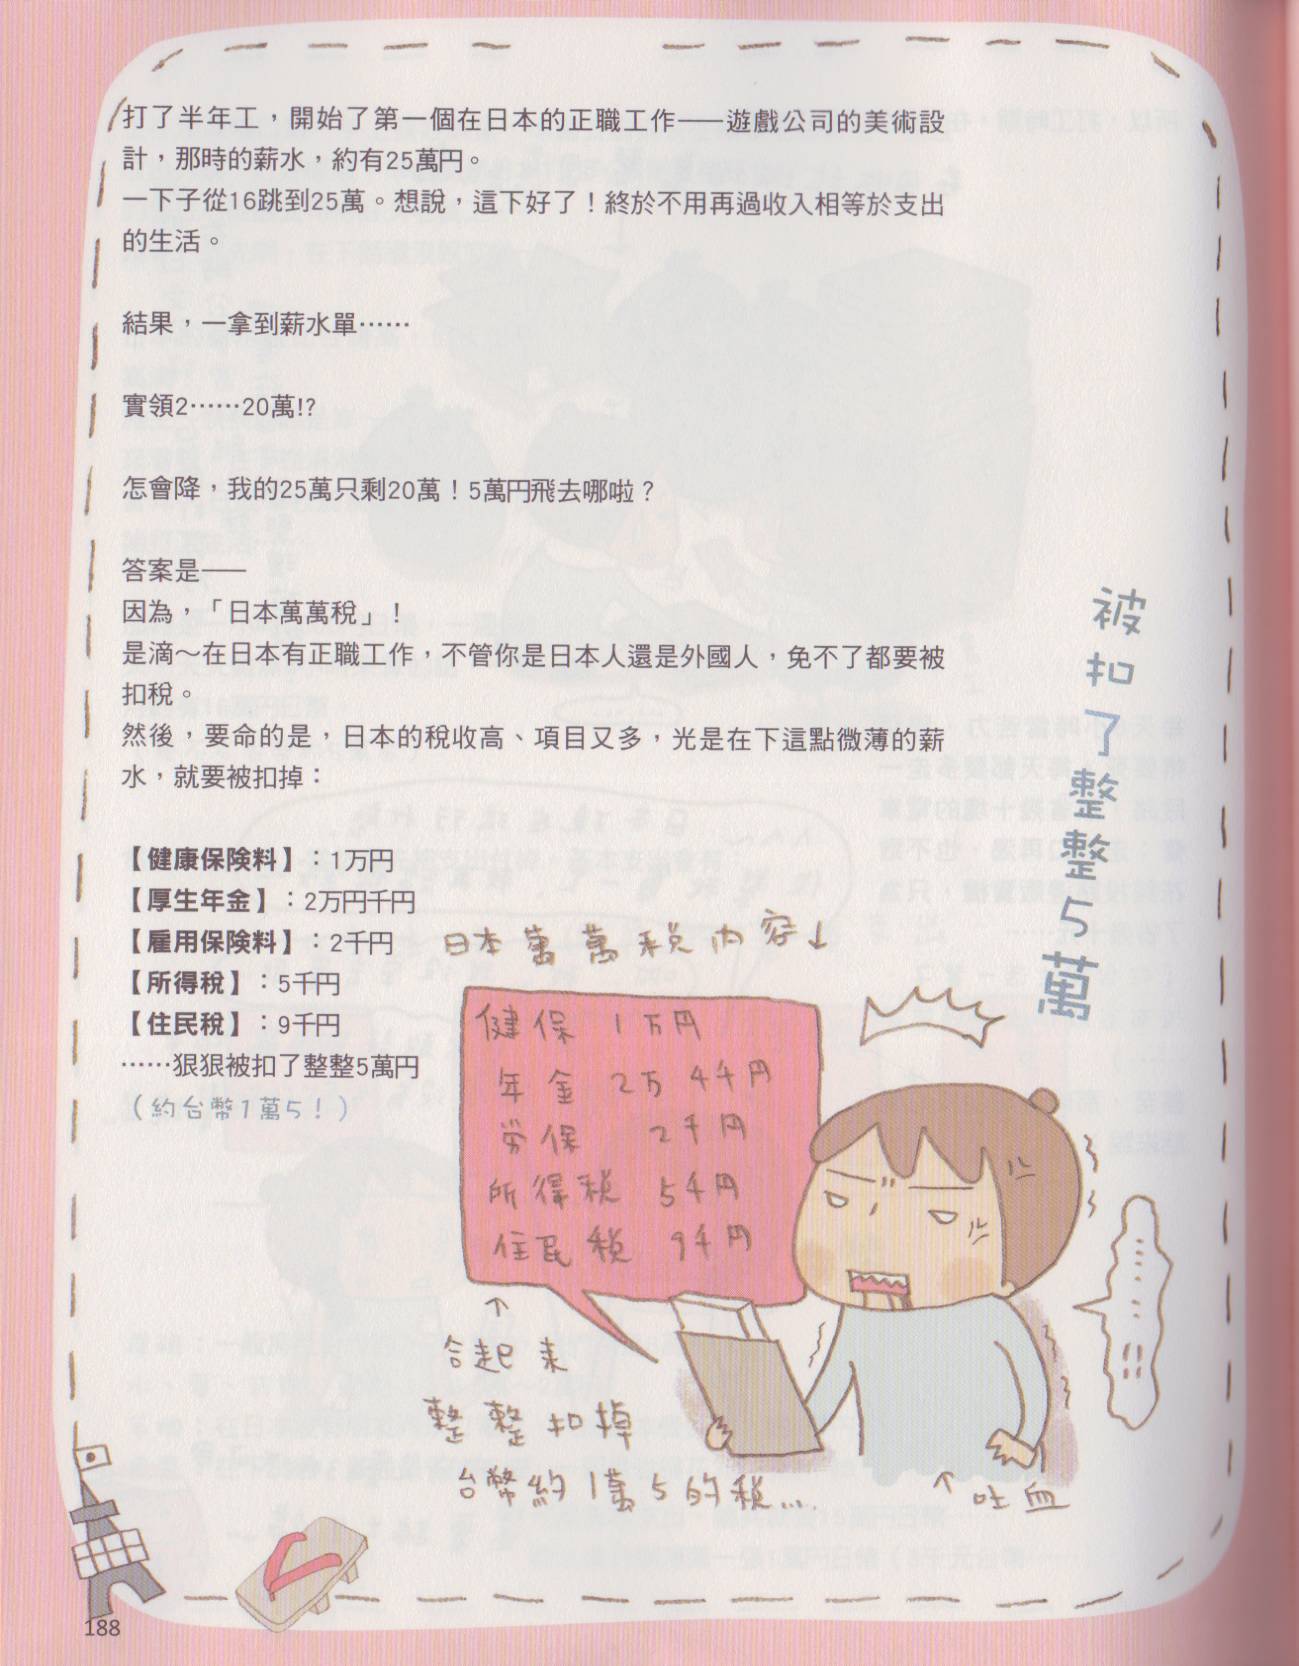 打了半年工，開始了第一個在日本的正職工作——遊戲公司的美術設
計，那時的薪水，約有25萬円。
一下子從16跳到25萬。想說，這下好了！終於不用再過收入相等於支出
的生活。
結果，一拿到薪水單……
實領2……20萬!?
怎會降，我的25萬只剩20萬！5萬円飛去哪啦？
答案是——
因為，「日本萬萬稅」！
是滴～在日本有正職工作，不管你是日本人還是外國人，免不了都要被
扣稅。
然後，要命的是，日本的稅收高、項目又多，光是在下這點微薄的薪
水，就要被扣掉：
【健康保険料】：1万円
【厚生年金】：2万円千円
【雇用保険料】：2千円
【所得稅】：5千円
【住民稅】：9千円
……狠狠被扣了整整5萬円
（約台幣1萬5！）
被扣了整整5萬
日本萬萬稅內容↓
健保 1万円
年金 2万4千円
労保 2千円
所得税 5千円
住民税 9千円
↑
合起來
整整扣掉
台幣約1萬5的稅…
……!!
↑吐血
188